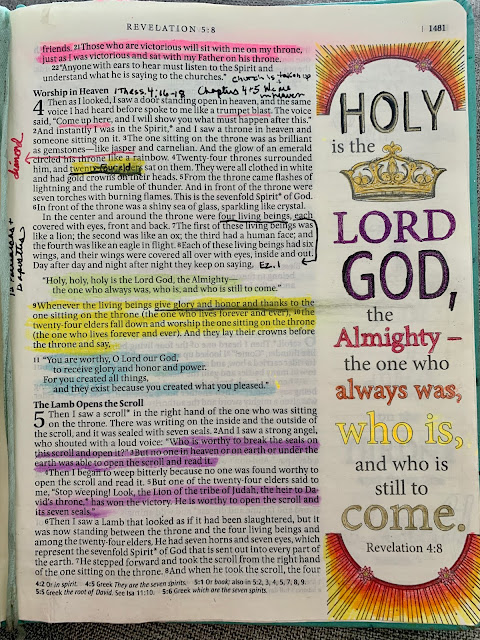 REVELATION 5:8
1481
friends. 21Those who are victorious will sit with me on my throne,
just as I was victorious and sat with my Father on his throne.
22"Anyone with ears to hear must listen to the Spirit and
understand what he is saying to the churches."
church is taken up
Worship in Heaven
1 Thess. 4:16-18
Chapters 4+5
in heaven
4 Then as I looked, I saw a door standing open in heaven, and the same
voice I had heard before spoke to me like a trumpet blast. The voice
said, "Come up here, and I will show you what must happen after this."
2And instantly I was in the Spirit,* and I saw a throne in heaven and
someone sitting on it. 3The one sitting on the throne was as brilliant
as gemstones—like jasper and carnelian. And the glow of an emerald
circled his throne like a rainbow. 4Twenty-four thrones surrounded
him, and twenty-four elders sat on them. They were all clothed in white
and had gold crowns on their heads. 5From the throne came flashes of
lightning and the rumble of thunder. And in front of the throne were
seven torches with burning flames. This is the sevenfold Spirit* of God.
6In front of the throne was a shiny sea of glass, sparkling like crystal.
In the center and around the throne were four living beings, each
covered with eyes, front and back. 7The first of these living beings was
like a lion; the second was like an ox; the third had a human face; and
the fourth was like an eagle in flight. 8Each of these living beings had six
wings, and their wings were covered all over with eyes, inside and out.
Day after day and night after night they keep on saying,
Ez. 1
"Holy, holy, holy is the Lord God, the Almighty—
the one who always was, who is, and who is still to come."
9Whenever the living beings give glory and honor and thanks to the
one sitting on the throne (the one who lives forever and ever), 10the
twenty-four elders fall down and worship the one sitting on the throne
(the one who lives forever and ever). And they lay their crowns before
the throne and say,
11"You are worthy, O Lord our God,
to receive glory and honor and power.
For you created all things,
and they exist because you created what you pleased."
The Lamb Opens the Scroll
5 Then I saw a scroll* in the right hand of the one who was sitting
on the throne. There was writing on the inside and the outside of
the scroll, and it was sealed with seven seals. 2And I saw a strong angel,
who shouted with a loud voice: "Who is worthy to break the seals on
this scroll and open it?" 3But no one in heaven or on earth or under the
earth was able to open the scroll and read it.
4Then I began to weep bitterly because no one was found worthy to
open the scroll and read it. 5But one of the twenty-four elders said to
me, "Stop weeping! Look, the Lion of the tribe of Judah, the heir to Da-
vid's throne,* has won the victory. He is worthy to open the scroll and
its seven seals."
6Then I saw a Lamb that looked as if it had been slaughtered, but it
was now standing between the throne and the four living beings and
among the twenty-four elders. He had seven horns and seven eyes, which
represent the sevenfold Spirit* of God that is sent out into every part of
the earth. 7He stepped forward and took the scroll from the right hand
of the one sitting on the throne. 8And when he took the scroll, the four
4:2 Or in spirit. 4:5 Greek They are the seven spirits. 5:1 Or book; also in 5:2, 3, 4, 5, 7, 8, 9.
5:5 Greek the root of David. See Isa 11:10. 5:6 Greek which are the seven spirits.
HOLY
is the
LORD
GOD,
the
Almighty –
the one who
always was,
who is,
and who is
still to
come.
Revelation 4:8